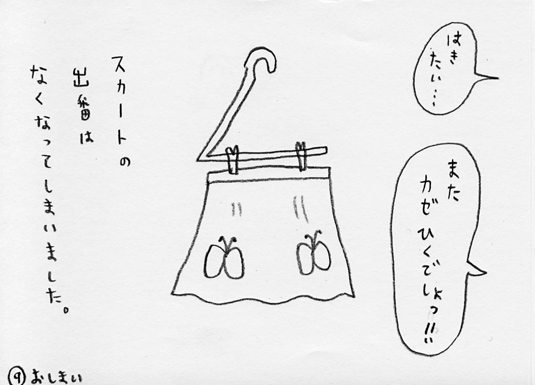 はき
たい…
また
カゼひくでしょっ!!
スカートの
出番は
なくなってしまいました。
⑨おしまい